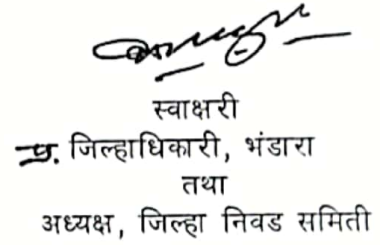 स्वाक्षरी
प्र. जिल्हाधिकारी, भंडारा
तथा
अध्यक्ष, जिल्हा निवड समिती